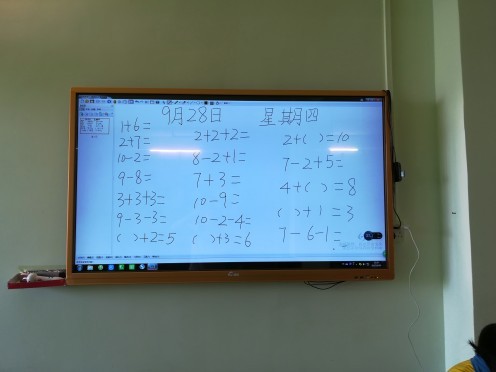 9月28日 星期四
1+6=
2+7=
10-2=
9-8=
3+3+3=
9-3-3=
( )+2=5
2+2+2=
8-2+1=
7+3=
10-9=
10-2-4=
( )+3=6
2+( )=10
7-2+5=
4+( )=8
( )+1=3
7-6-1=